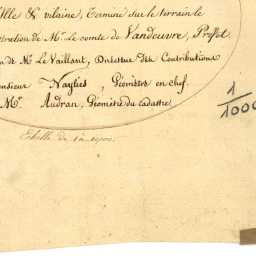 Ille & vilaine, Terminé sur le terrain le
stration de Mr. le comte de Vandœuvre, Préfet
n de Mr. Le Vaillant, Directeur des Contributions
onsieur Naylies, Géomètre en chef.
Mr. Audran, Géomètre du cadastre.
Echelle de 1 à
1
1000